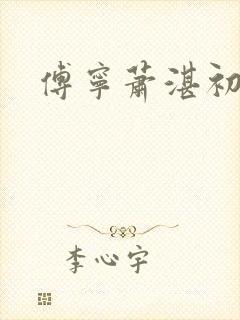 傅寧蕭湛初
李心宇